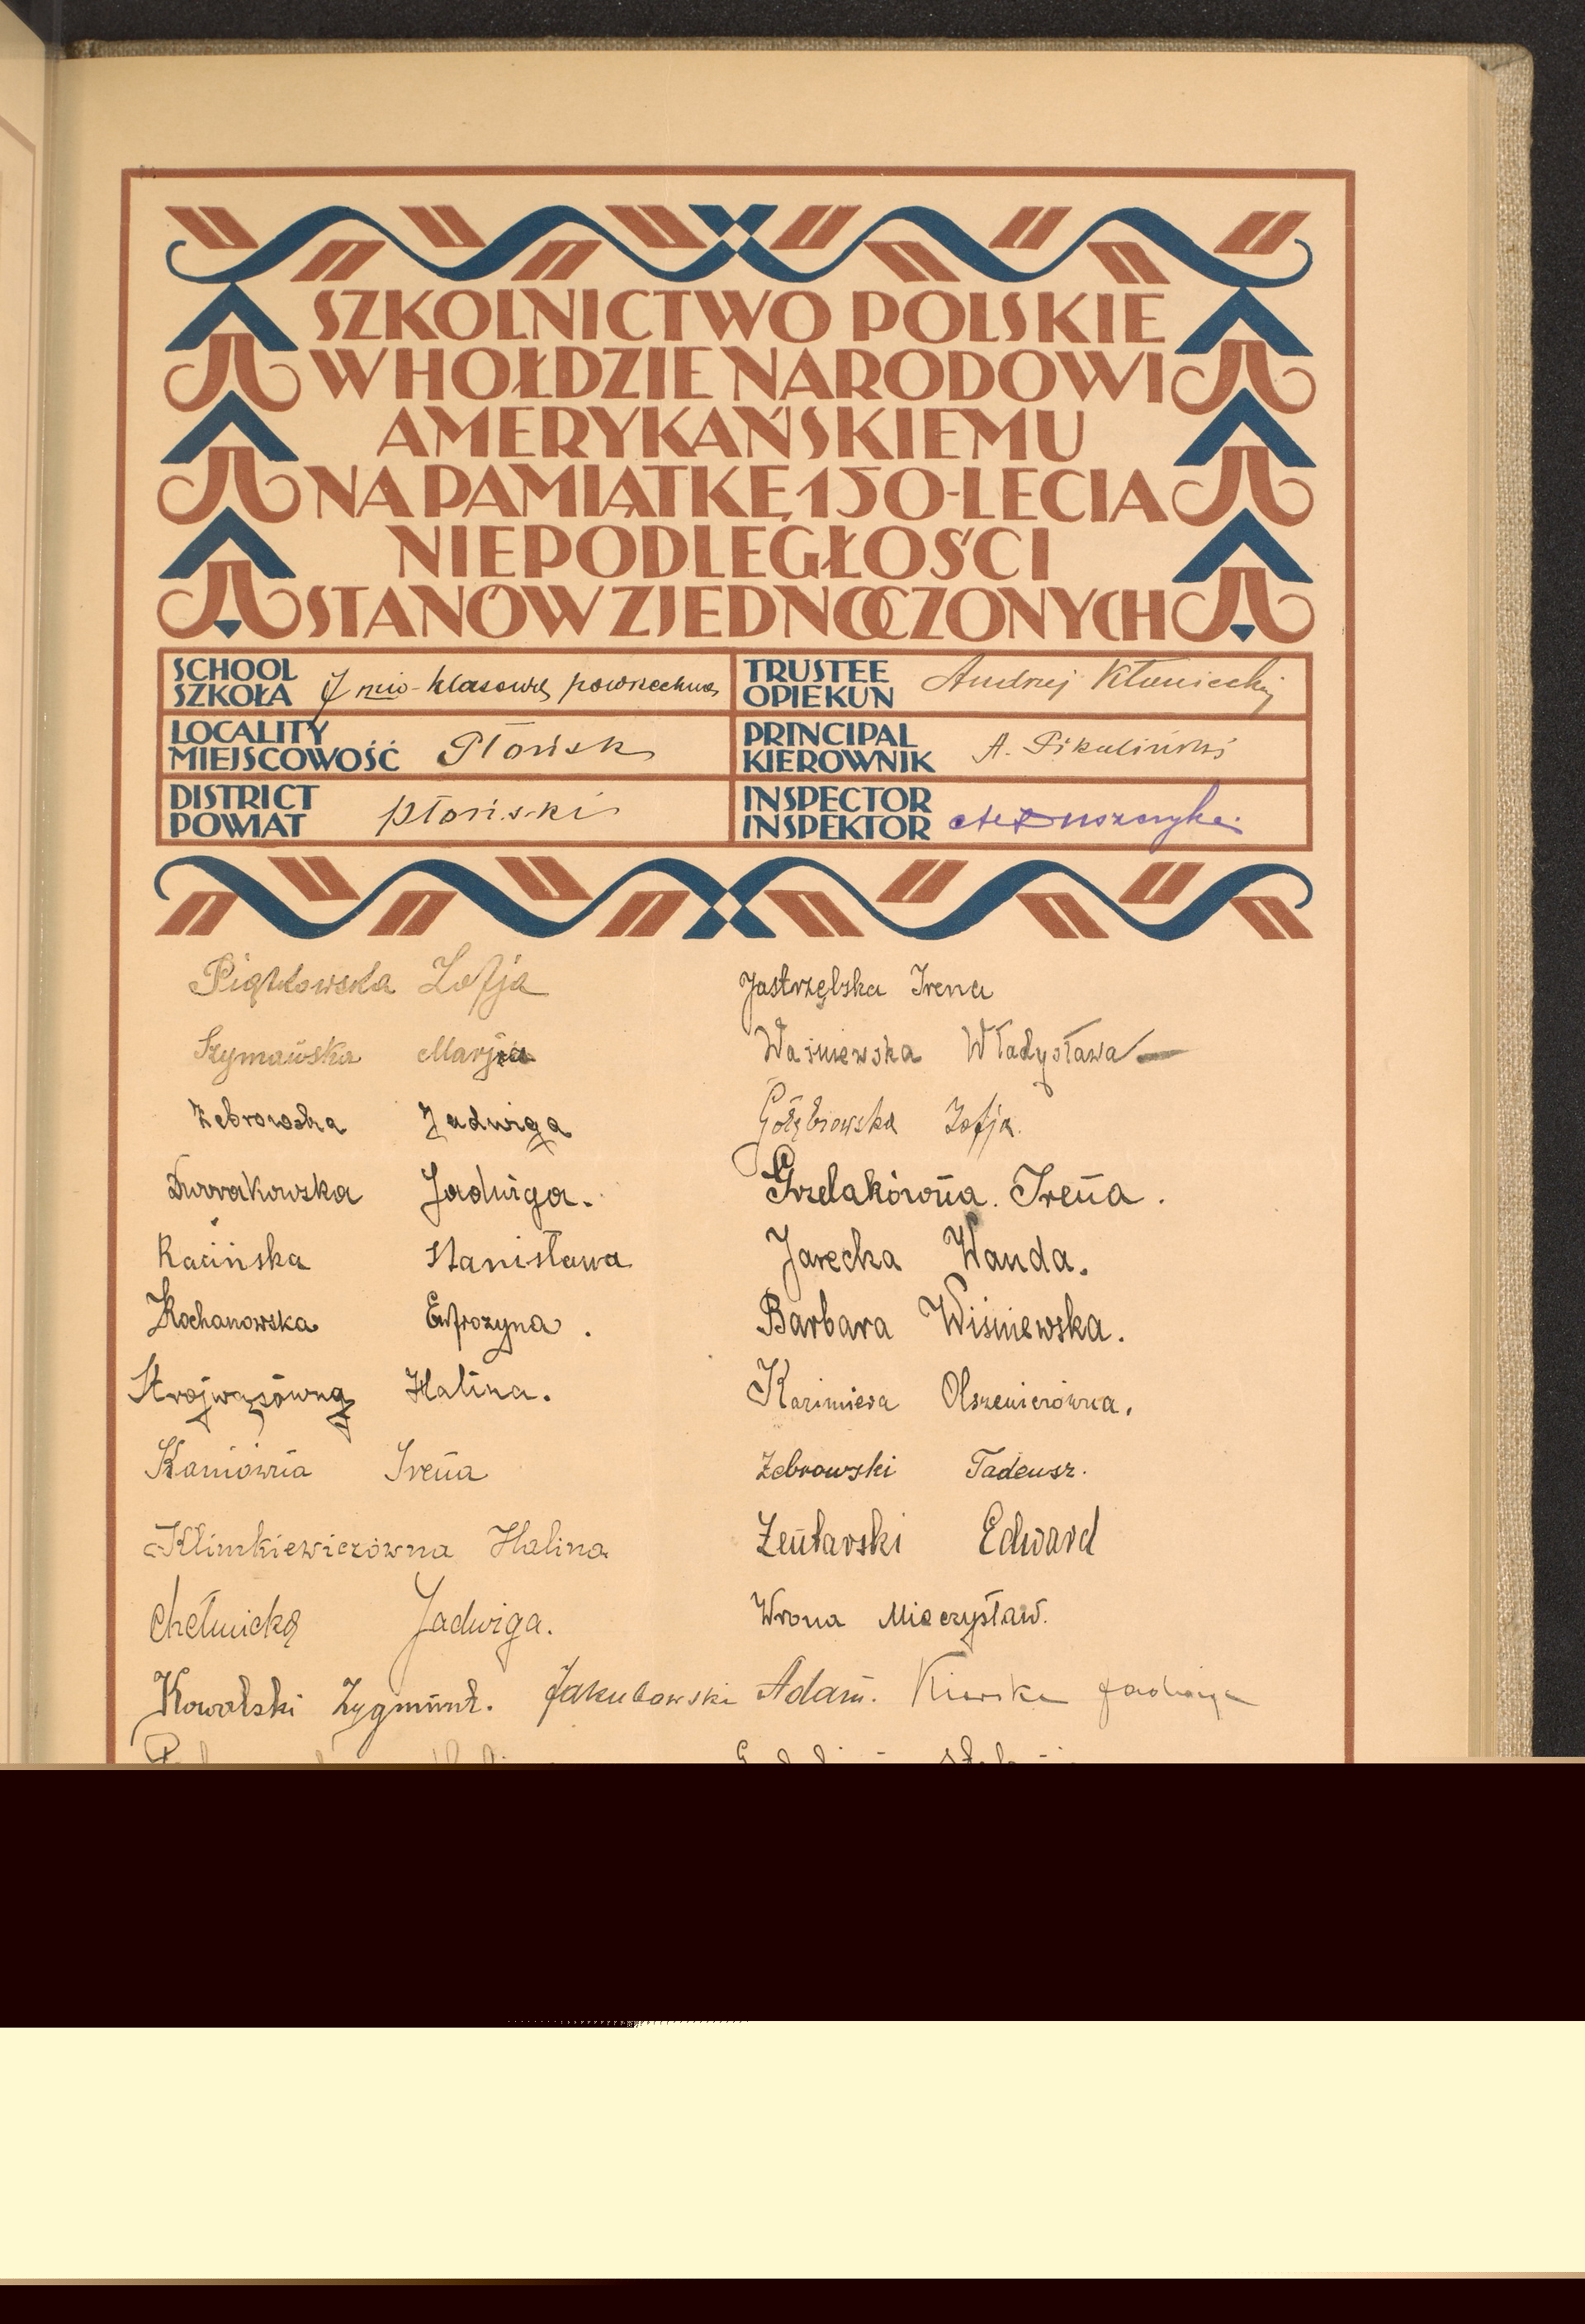 SZKOLNICTWO POLSKIE
W HOŁDZIE NARODOWI
AMERYKAŃSKIEMU
NA PAMIĄTKĘ 150-LECIA
NIEPODLEGŁOŚCI
STANÓW ZJEDNOCZONYCH
SCHOOL
SZKOŁA 7 mio-klasowa powszechna
TRUSTEE
OPIEKUN Andrzej Kłoniecki
LOCALITY
MIEJSCOWOŚĆ Płońsk
PRINCIPAL
KIEROWNIK A. Pikuliński
DISTRICT
POWIAT płoński
INSPECTOR
INSPEKTOR
Piątkowska Zofja
Jastrzębska Irena
Szymańska Marja
Waśniewska Władysława
Żebrowska Jadwiga
Gołębiowska Zofja.
Dworakowska Jadwiga.
Grzelakówna. Irena.
Racińska Stanisława
Jarecka Wanda.
Kochanowska Eufrozyna.
Barbara Wiśniewska.
Strojwąsówna Halina.
Kazimiera Olszewiczówna.
Kaniówna Irena
Żebrowski Tadeusz.
Klimkiewiczówna Halina
Zentarski Edward
Chełmicka Jadwiga.
Wrona Mieczysław.
Kowalski Zygmunt. Jakubowski Adam. Jadwiga